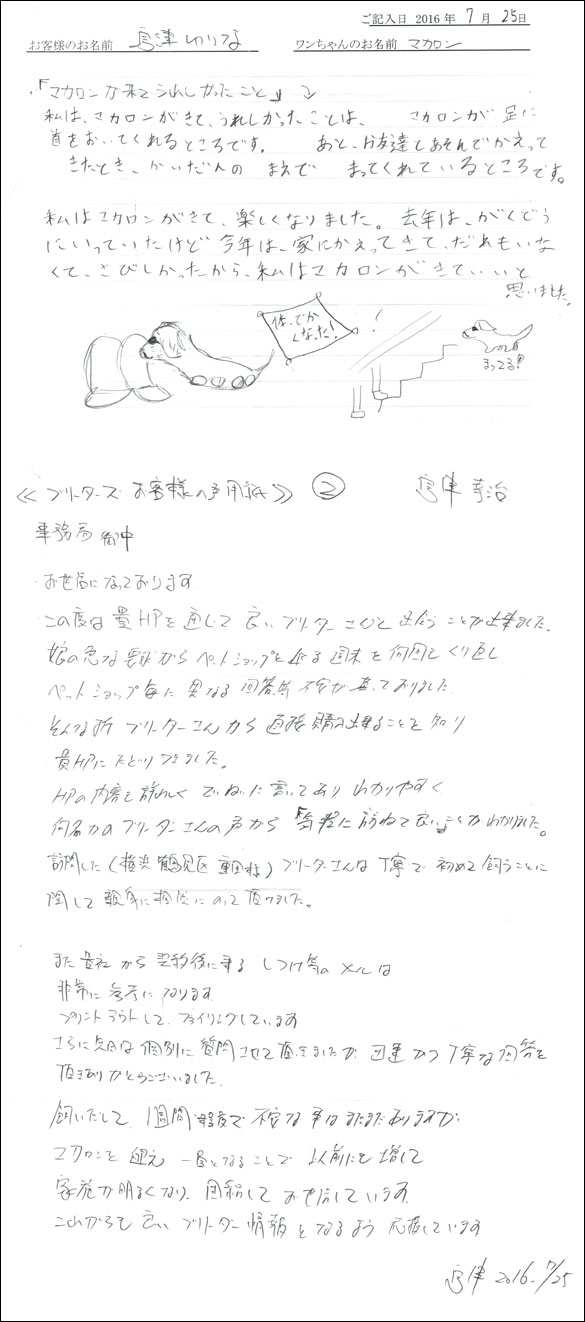 ご記入日 2016 年 7 月 25日
お客様のお名前 宮津 ゆりな ワンちゃんのお名前 マカロン
「マカロンが来てうれしかったこと」
私は、マカロンがきて、うれしかったことは、 マカロンが 足に
首をおいてくれるところです。 あと、お友達とあそんでかえって
きたとき、かいだんの まえで まってくれているところです。
私はマカロンがきて、楽しくなりました。去年は、がくどう
にいっていたけど今年は、家にかえってきて、だれもいな
くて、さびしかったから、私はマカロンがきていいと
思いました。
体、でか
くなった!
!
まってる!
≪ブリーダーズ お客様の声用紙≫ ②
宮津
事務局 御中
お世話になっております
この度は貴HPを通じて良いブリーダーさんと出会うことが出来ました。
娘の急な要望からペットショップを巡る週末を何回もくり返し
ペットショップ毎に異なる回答等不安が募っておりました
そんな折 ブリーダーさんから直接購入出来ることを知り
貴HPにたどりつきました。
HPの内容も詳しくていねいに書いてありわかりやすく
何名かのブリーダーさんの声から「気軽に訪ねて良い」ことがわかりました。
訪問した(横浜 鶴見区 様)ブリーダーさんは丁寧で初めて飼うことに
関して親身に相談にのって頂けました。
また貴社から契約後に来る しつけ等のメールは
非常に参考になります
プリントアウトして、ファイリングしています
さらに先日は個別に質問させて頂きましたが 迅速かつ丁寧な回答を
頂きありがとうございました
飼いだして、1週間程度で不安な事はまだまだありますが
マカロンを迎え 一員となることで 以前にも増して
家族が明るくなり、団結してお世話しています
これからも良いブリーダー情報となるよう応援しています
宮津 2016. 7/25